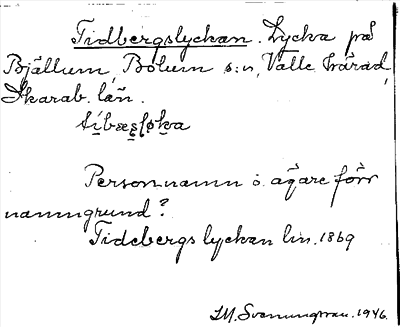 Tidbergslyckan. Lycka på
Bjällum, Bolum s:n, Valle härad,
Skarab. län.
Personnamn o. ägare förr
namngrund?
Tidebergs lyckan lm. 1869
1946.